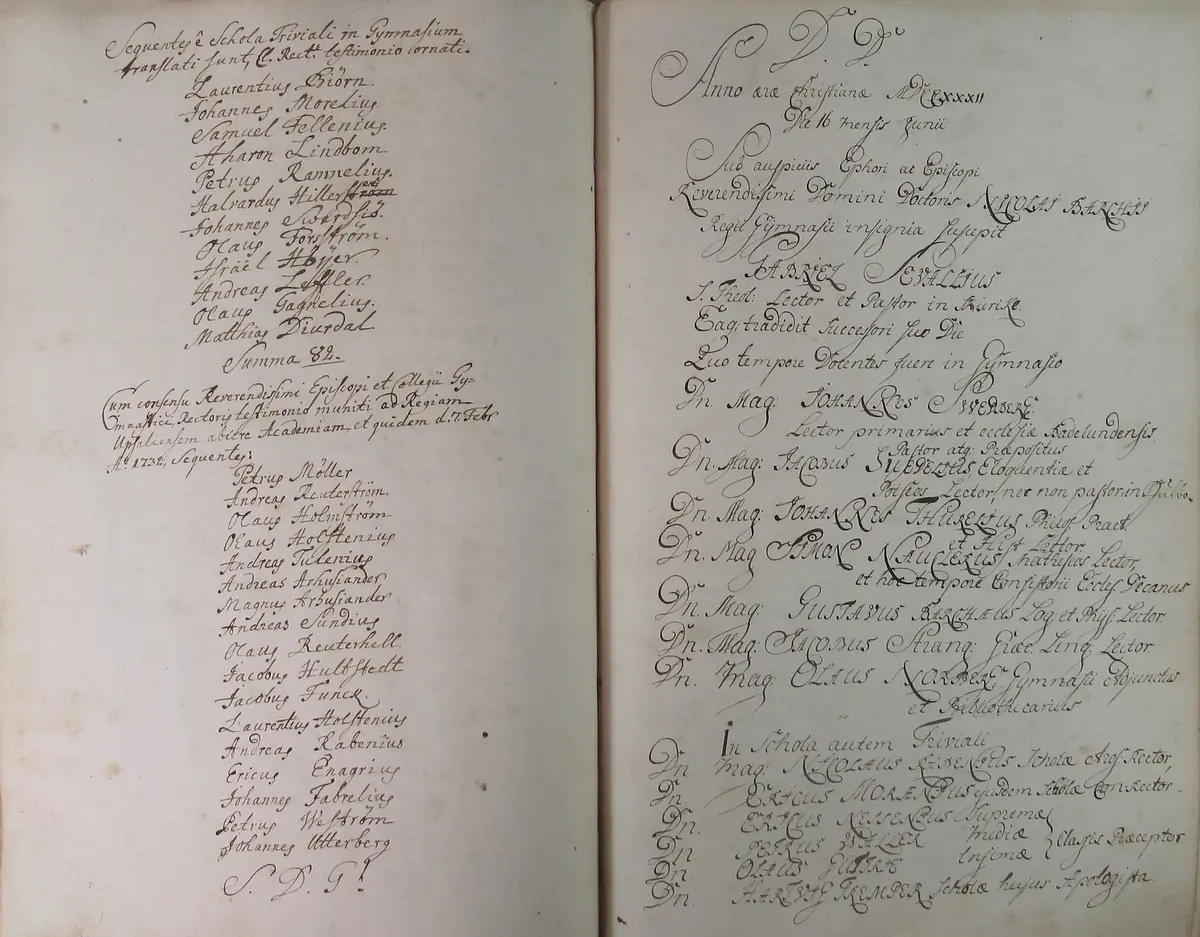 Sequentes ê Schola Triviali in Gymnasium
translati sunt, Cl. Rect: testimonio *ornati.
Laurentius Biörn.
Johannes Morelius.
Samuel Fellenius.
Aharon Lindbom
Petrus Ramnelius.
Halvardus Hiller
Johannes Swerdsiö.
Olaus Forsström.
Israël Höijer
Andreas Löffler.
Olaus Gagnelius.
Matthias Diurdal
Summa 82.
Cum consensu Reverendissimi Episcopi et Collegii Gy-
mnastici, Rectoris testimonio muniti ad Regiam
Upsaliensem abiere Academiam, et quidem d. 7. Febr
A:o 1732, Sequentes:
Petrus Möller
Andreas Reuterström.
Olaus Holmström
Olaus Holstenius
Andreas Tulenius
Andreas Arhusiander
Magnus Arhusiander
Andreas Sundius
Olaus Reuterhell.
Jacobus Hultstedt
Jacobus Funck.
Laurentius Holstenius
Andreas Rabenius
Ericus Enagrius
Johannes Fabrelius
Petrus Weström
Johannes Utterberg
S. D. G!
D. D.
Anno æræ Christianæ MDCCXXXII
Die 16 mensis Junii
Sub auspiciis Ephori ac Episcopi
Reverendissimi Domini Doctoris NICOLAI BARCHII
Regii Gymnasii insignia suscepit
GABRIEL SEVALLIUS
S. Theol: Lector et Pastor in
Eaq; tradidit successori suo Die
Quo tempore Docentes fuere in Gymnasio
Dn. Mag: JOHANNES SWEBERG
Lector primarius et ecclesiæ Badelundensis
Pastor atq; Præpositus
Dn. Mag: JACOBUS Eloquentiæ et
Poiseos Lector, nec non pastor in
Dn. Mag: JOHANNES THURELIUS Philos Pract.
et Hist Lector
Dn. Mag SIMON NAUCLERUS Matheseos Lector,
et hoc tempore Consistorii Eccles. Decanus
Dn. Mag: GUSTAVUS BARCHÆUS Log: et Phys: Lector
Dn. Mag: JACOBUS Strang: Græc. Ling. Lector.
Dn. Mag: OLAUS NORBERG Gymnasii Adjunctus
et Bibliothecarius
In Schola autem Triviali
Dn. Mag: NICOLAUS Scholæ Aros. Rector,
Dn. ERICUS MORÆNIUS ejusdem Scholæ ConRector
Dn. ERICUS Supremæ
Dn PETRUS WALLER Mediæ Classis Præceptor
Dn. OLAUS Infimæ
Dn. HARTWIG KEMPER Scholæ hujus Apologista